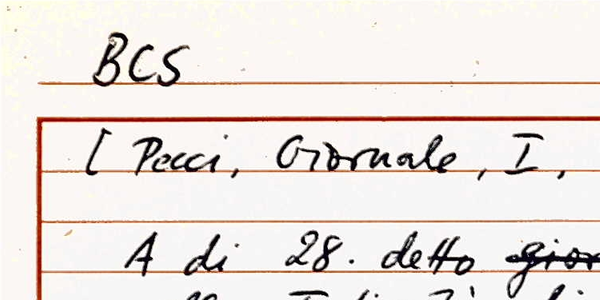 BCS
[ Pecci, Giornale, I,
A di 28. detto